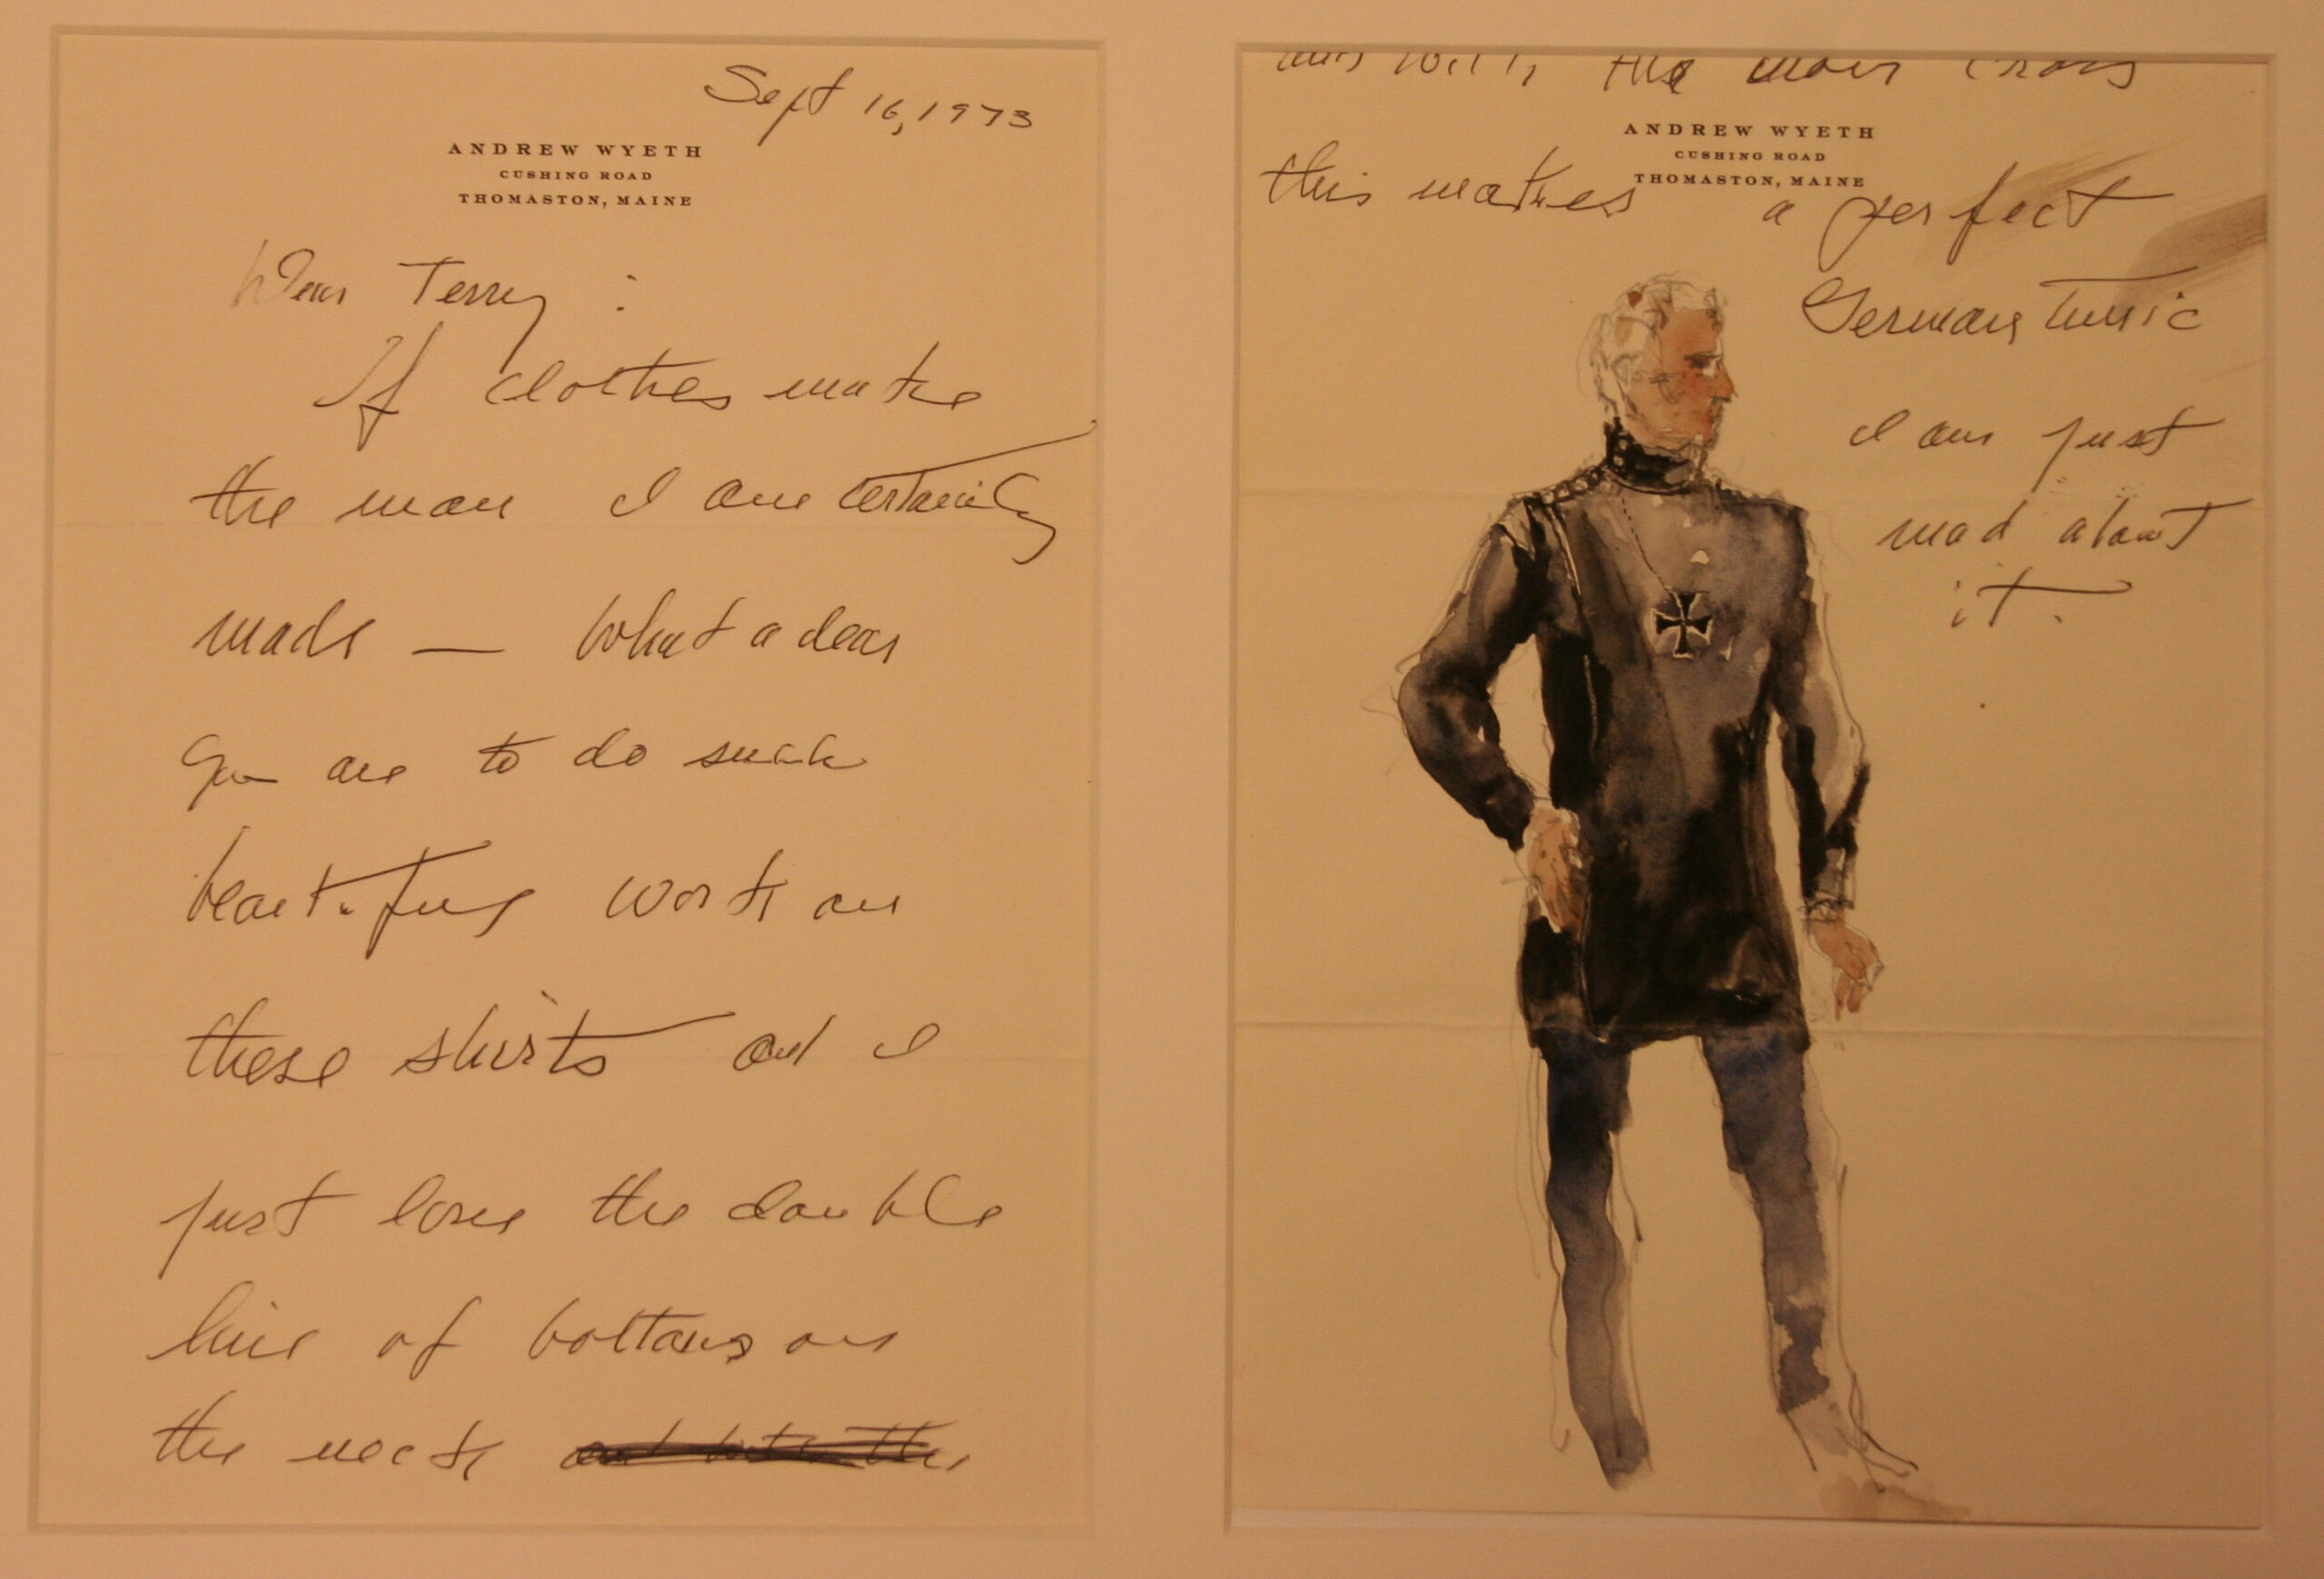 Sept 16, 1973
ANDREW WYETH
CUSHING ROAD
THOMASTON, MAINE
Dear Terry :
If clothes make
the man I am certainly
made — What a dear
you are to do such
beautiful work on
these shirts and I
just love the double
line of bottons on
the neck and with the
and with the iron cross
ANDREW WYETH
CUSHING ROAD
THOMASTON, MAINE
this makes a perfect
German tunic
I am just
mad about
it.